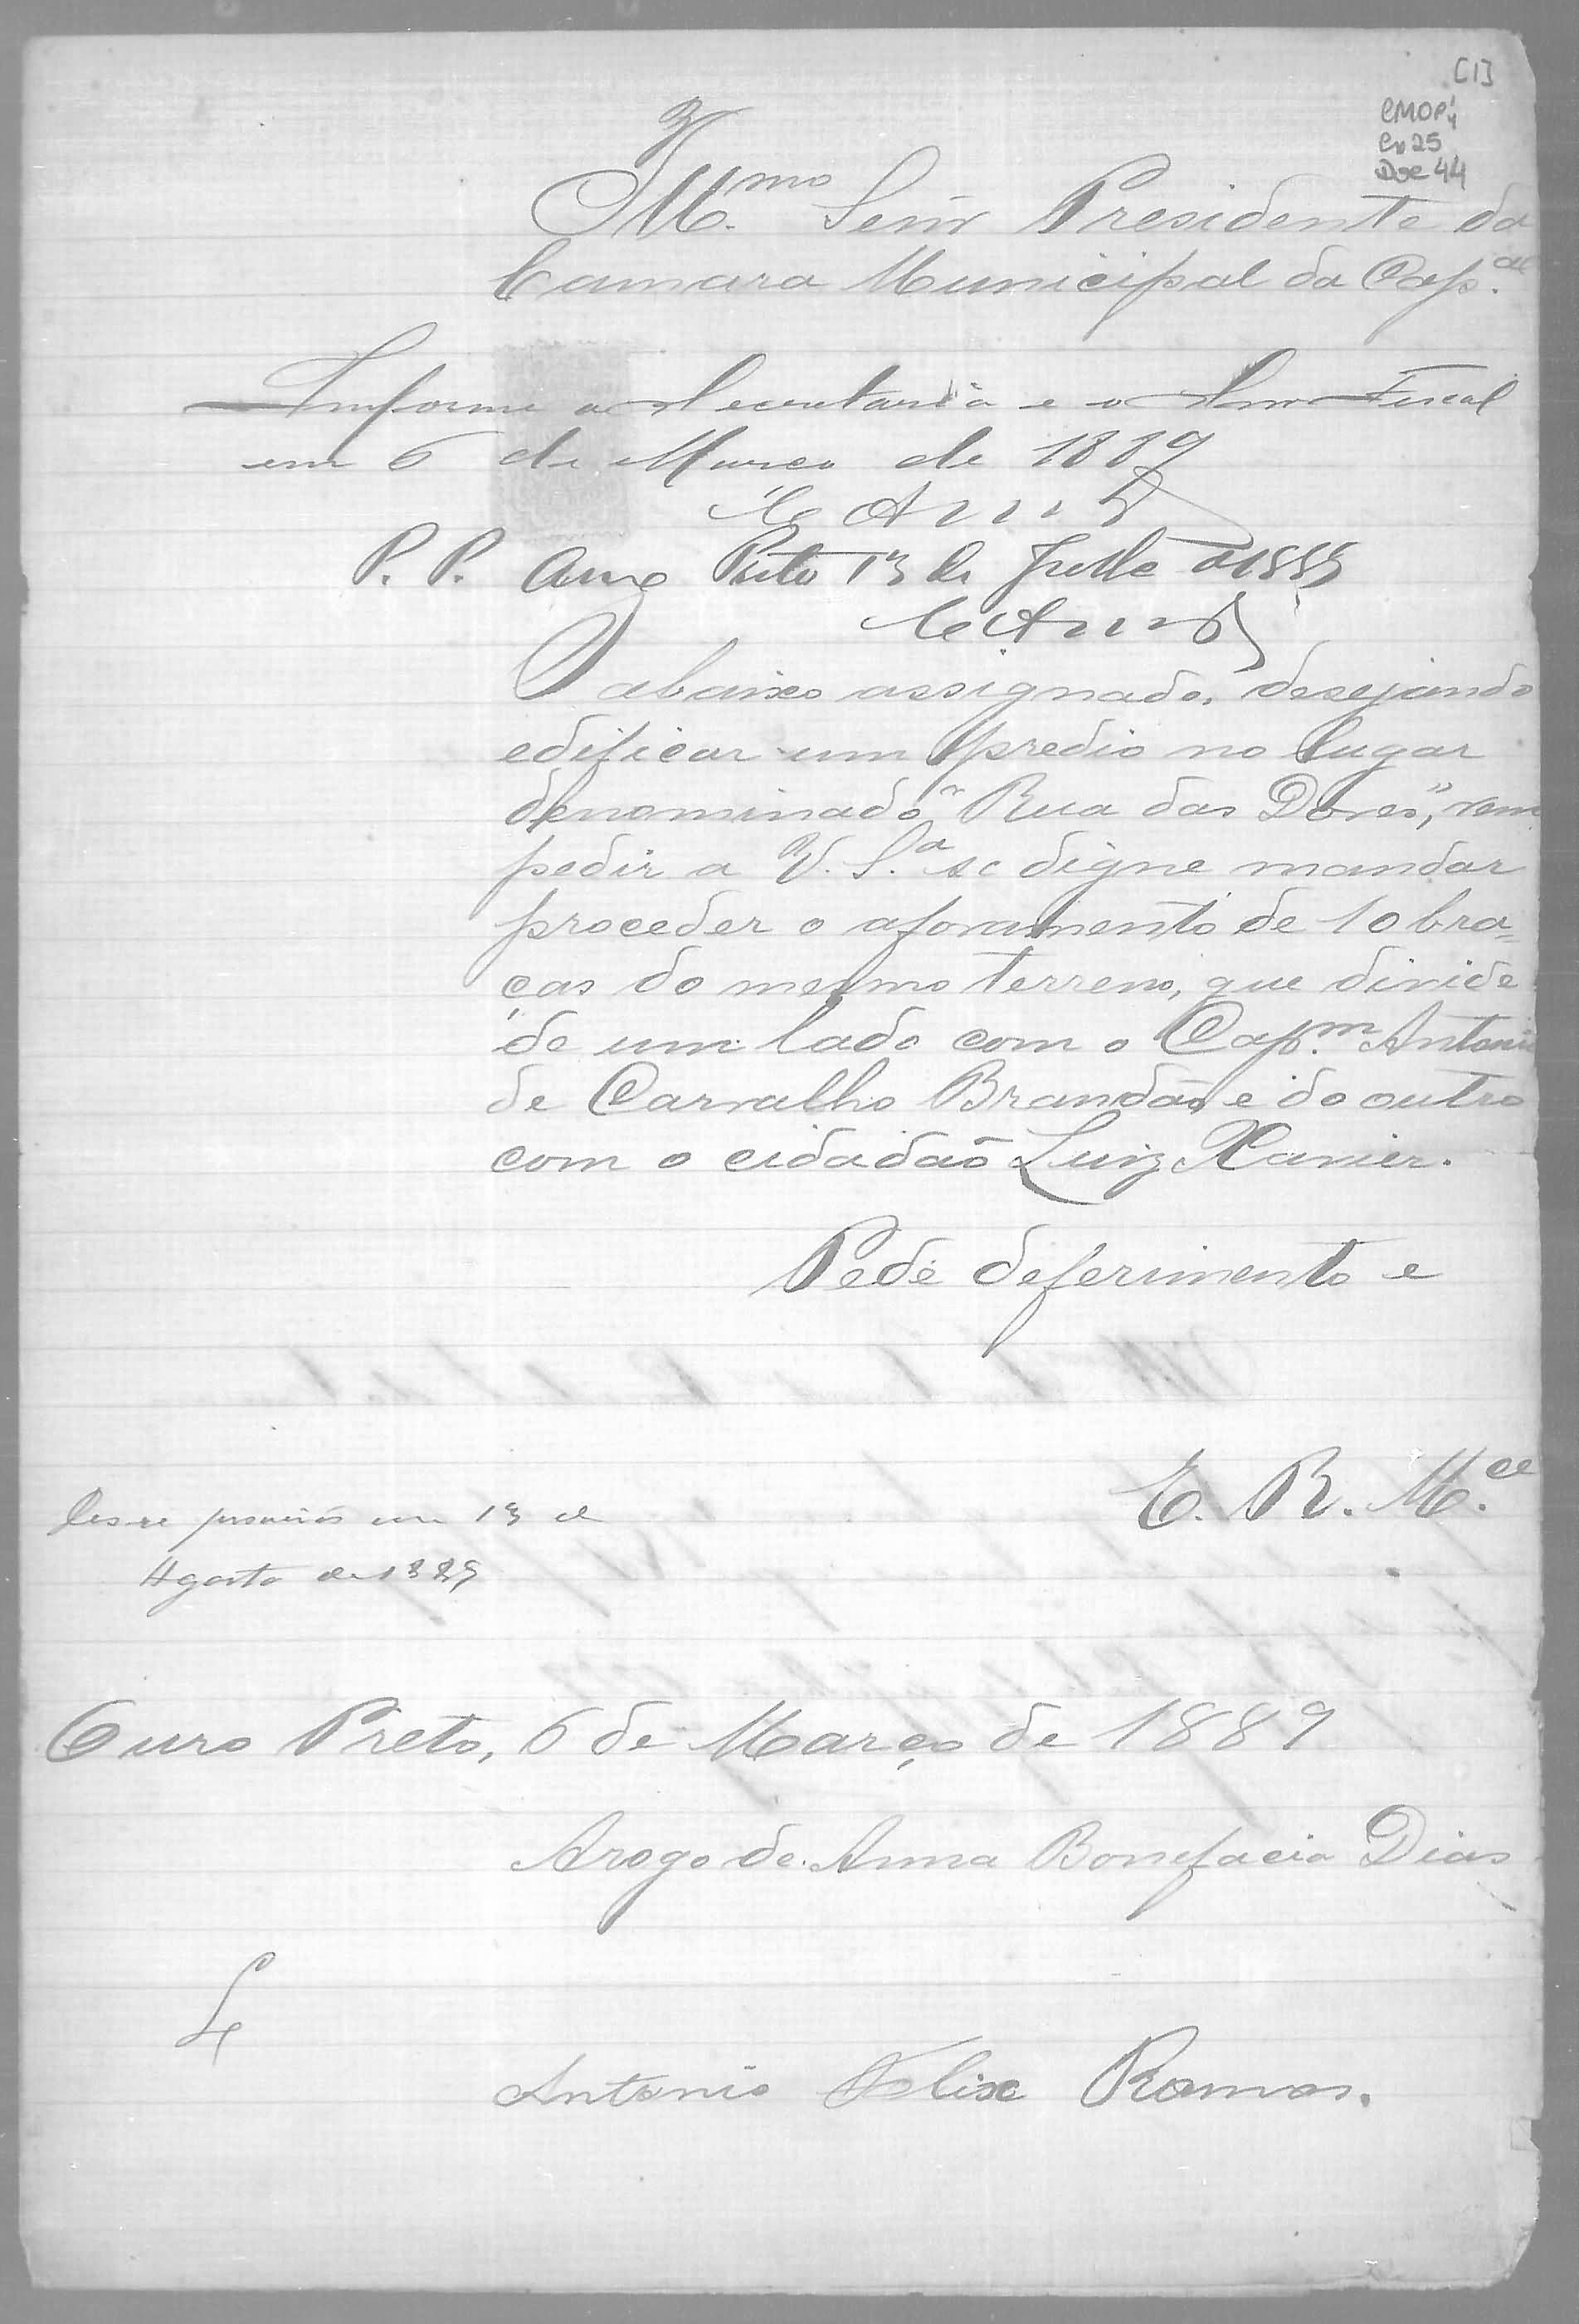 [1]
CMOP
Cx 25
Doc 44
Illmo. Senr Presidente da
Camara Municipal da Cap.al
Informe a Secretaria e o Snr Fiscal
em 6 de Março de 1889
P. P. Ouro Preto 13 de Julho de 1889
O abaixo assignado, desejando
edificar um predio no lugar
denominado "Rua das Dores", vem
pedir a V. S.a se digne mandar
proceder o aforamento de 10 bra=
ças do mesmo terreno, que divide
de um lado com o Cap.m Antonio
de Carvalho Brandão, e do outro
com o cidadão Luiz Xavier.
Pede deferimento e
E. R. M.ce
em 13 de
Agosto de 1889
Ouro Preto, 6 de Março de 1889
Arogo de Anna Bonefacia Dias
Antonio Felix Ramos.